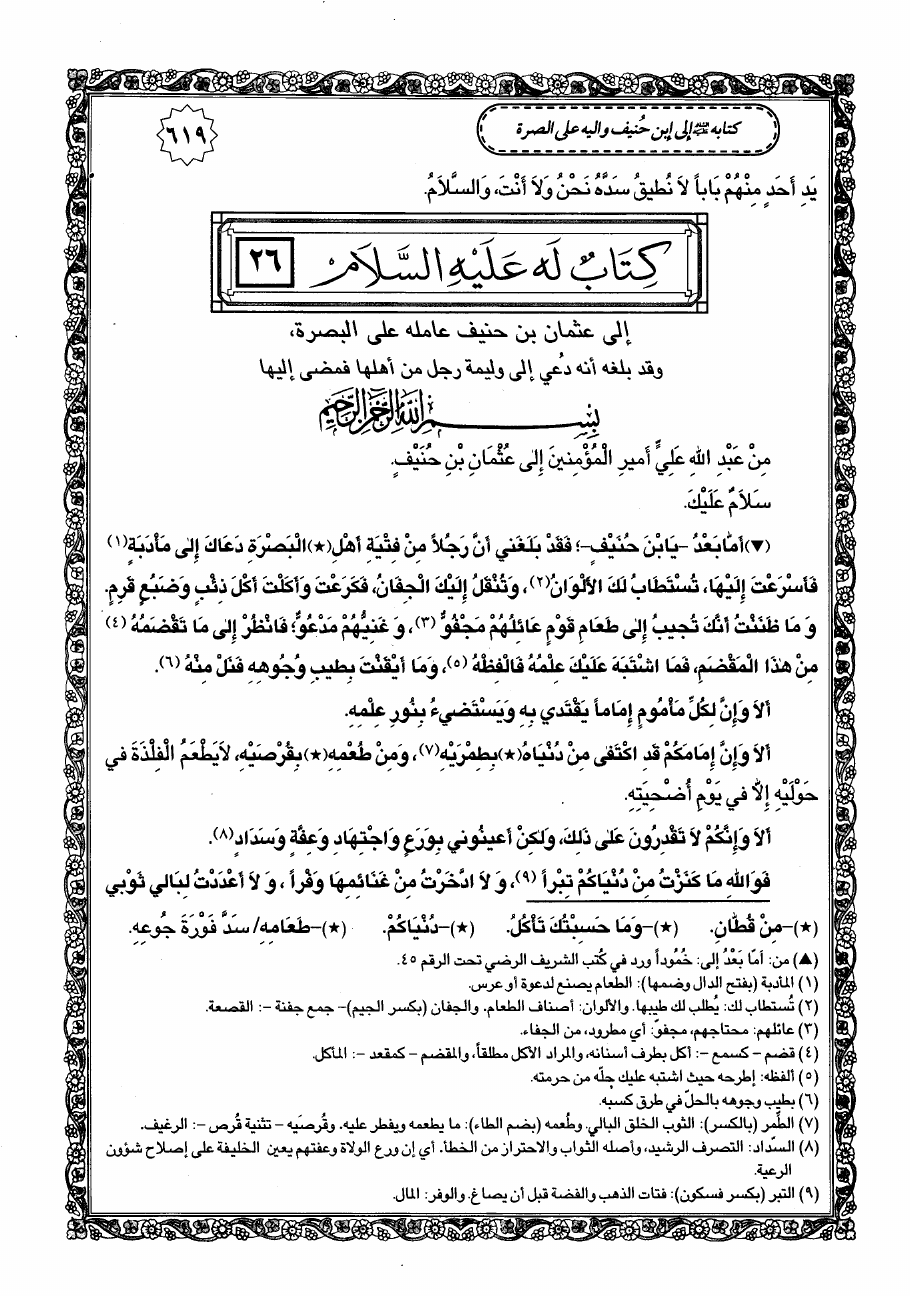 كتابه ﷺ إلى إبن حُنيف واليه على الصرة
٦١٩
يَدِ أَحَدٍ مِنْهُمْ بَاباً لاَ نُطيقُ سَدَّهُ نَحْنُ وَلاَ أَنْتَ، وَالسَّلاَمُ.
كِتَابٌ لَه عَلَيْهِ السَّلاَم
٢٦
إلى عثمان بن حنيف عامله على البصرة،
وقد بلغه أنه دُعي إلى وليمة رجل من أهلها فمضى إليها
بِسْمِ اللهِ الرَّحْمٰنِ الرَّحِيمِ
مِنْ عَبْدِ اللهِ عَلِيٍّ أَميرِ الْمُؤْمِنينَ إِلى عُثْمَانِ بْنِ حُنَيْفٍ.
سَلاَمٌ عَلَيْكَ.
(▼)أَمَّا بَعْدُ -يَابْنَ حُنَيْفٍ-؛ فَقَدْ بَلَغَني أَنَّ رَجُلاً مِنْ فِتْيَةِ أَهْلِ(★)الْبَصْرَةِ دَعَاكَ إِلى مَأْدَبَةٍ(١)
فَأَسْرَعْتَ إِلَيْهَا، تُسْتَطَابُ لَكَ الأَلْوَانُ(٢)، وَتُنْقَلُ إِلَيْكَ الْجِفَانُ، فَكَرَعْتَ وَأَكَلْتَ أَكْلَ ذِئْبٍ وَضَبُعٍ قَرِمٍ.
وَ مَا ظَنَنْتُ أَنَّكَ تُجيبُ إِلى طَعَامِ قَوْمٍ عَائِلُهُمْ مَجْفُوٌّ(٣)، وَ غَنِيُّهُمْ مَدْعُوٌّ؛ فَانْظُرْ إِلى مَا تَقْضَمُهُ (٤)
مِنْ هذَا الْمَقْضَمِ، فَمَا اشْتَبَهَ عَلَيْكَ عِلْمُهُ فَالْفِظْهُ (٥)، وَمَا أَيْقَنْتَ بِطيبِ وُجُوهِهِ فَنَلْ مِنْهُ (٦).
أَلاَ وَإِنَّ لِكُلِّ مَأْمُومٍ إِمَاماً يَقْتَدي بِهِ وَيَسْتَضيءُ بِنُورِ عِلْمِهِ.
أَلاَ وَإِنَّ إِمَامَكُمْ قَدِ اكْتَفى مِنْ دُنْيَاهُ(★)بِطِمْرَيْهِ(٧)، وَمِنْ طُعْمِهِ(★)بِقُرْصَيْهِ، لاَيَطْعَمُ الْفِلْذَةَ في
حَوْلَيْهِ إِلاَّ في يَوْمِ أُضْحِيَتِهِ.
أَلاَ وَإِنَّكُمْ لاَ تَقْدِرُونَ عَلى ذلِكَ، وَلكِنْ أَعينُوني بِوَرَعٍ وَاجْتِهَادٍ وَعِفَّةٍ وَسَدَادٍ(٨).
فَوَاللهِ مَا كَنَزْتُ مِنْ دُنْيَاكُمْ تِبْراً (٩)، وَ لاَ ادَّخَرْتُ مِنْ غَنَائِمِهَا وَفْراً ، وَ لاَ أَعْدَدْتُ لِبَالي ثَوْبي
(★)-مِنْ قُطَّانِ. (★)-وَمَا حَسِبْتُكَ تَأْكُلُ. (★)-دُنْيَاكُمْ. (★)-طَعَامِهِ/ سَدَّ فَوْرَةَ جُوعِهِ.
(▲) من: أمّا بَعْدُ إلى: خُمُوداً ورد في كُتب الشريف الرضي تحت الرقم ٤٥.
(١) المأدبة (بفتح الدال وضمها): الطعام يصنع لدعوة أو عرس.
(٢) تُستطاب لك: يُطلب لك طيبها. والألوان: أصناف الطعام. والجفان (بكسر الجيم)- جمع جفنة -: القصعة.
(٣) عائلهم: محتاجهم، مجفوّ: أي مطرود، من الجفاء.
(٤) قضم - كسمع -: أكل بطرف أسنانه، والمراد الأكل مطلقاً، والمقضم - كمقعد -: المأكل.
(٥) ألفظه: إطرحه حيث اشتبه عليك حِلّه من حرمته.
(٦) بطيب وجوهه بالحلّ في طرق كسبه.
(٧) الطِّمر (بالكسر): الثوب الخلق البالي. وطُعمه (بضم الطاء): ما يطعمه ويفطر عليه. وقُرصَيه - تثنية قُرص -: الرغيف.
(٨) السّداد: التصرف الرشيد، وأصله الثواب والاحتراز من الخطأ. أي إن ورع الولاة وعفتهم يعين الخليفة على إصلاح شؤون
الرعية.
(٩) التبر (بكسر فسكون): فتات الذهب والفضة قبل أن يصاغ. والوفر: المال.